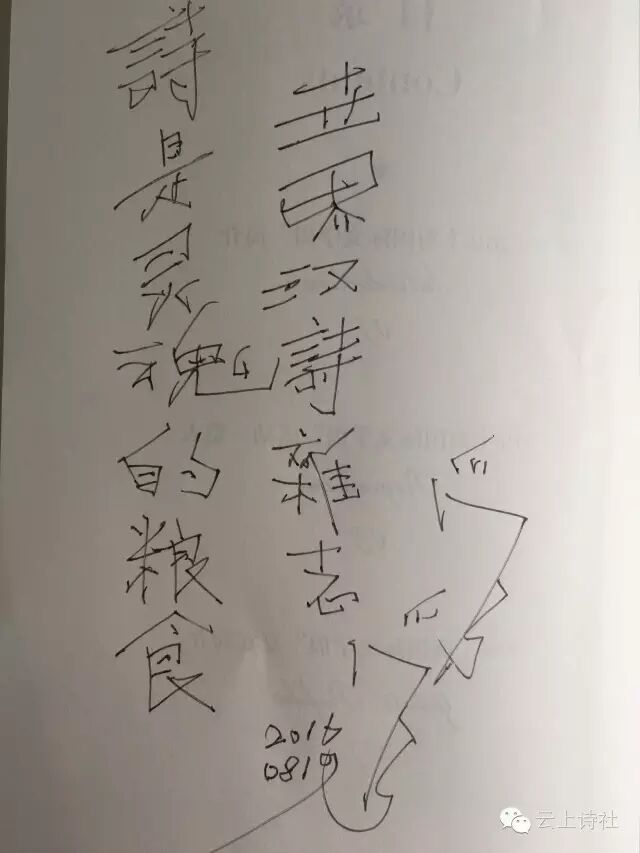 世界汉詩雜志
詩是灵魂的粮食
2016
0819
云上诗社